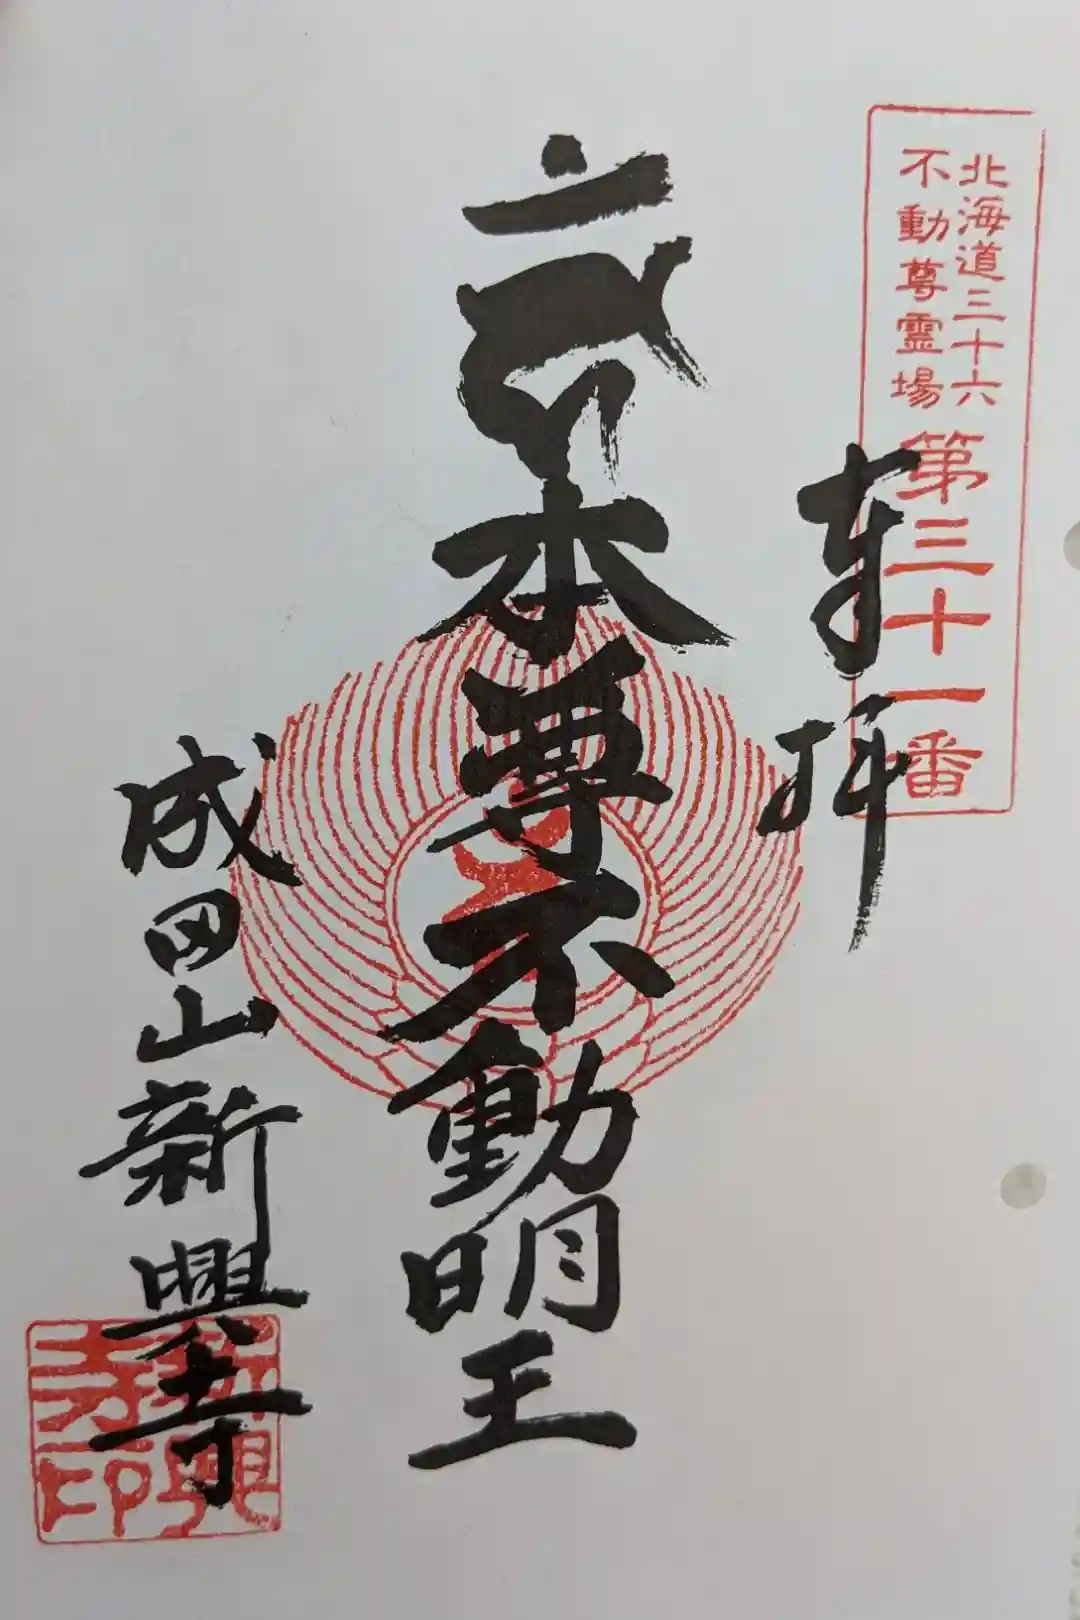 北海道三十六
不動尊霊場
第三十一番
奉拝
本尊不動明王
成田山新興寺
新興
寺印